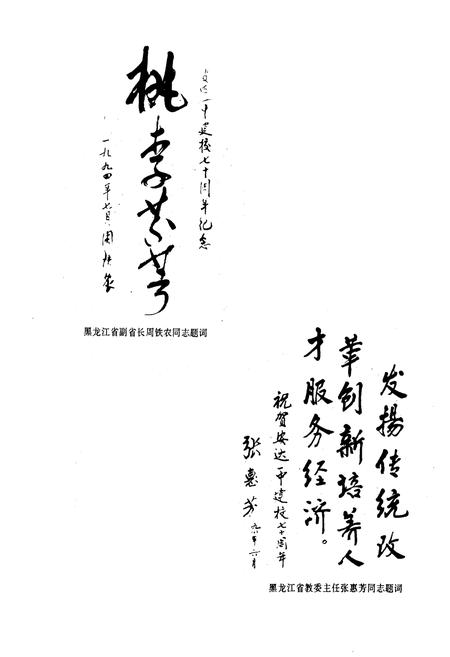 安达一中建校七十周年纪念
桃李芬芳
一九九四年七月 周铁农
黑龙江省副省长周铁农同志题词
发揚传统改
革创新培养人
才服务经济。
祝贺安达一中建校七十周年
张惠芳
年六月
黑龙江省教委主任张惠芳同志题词